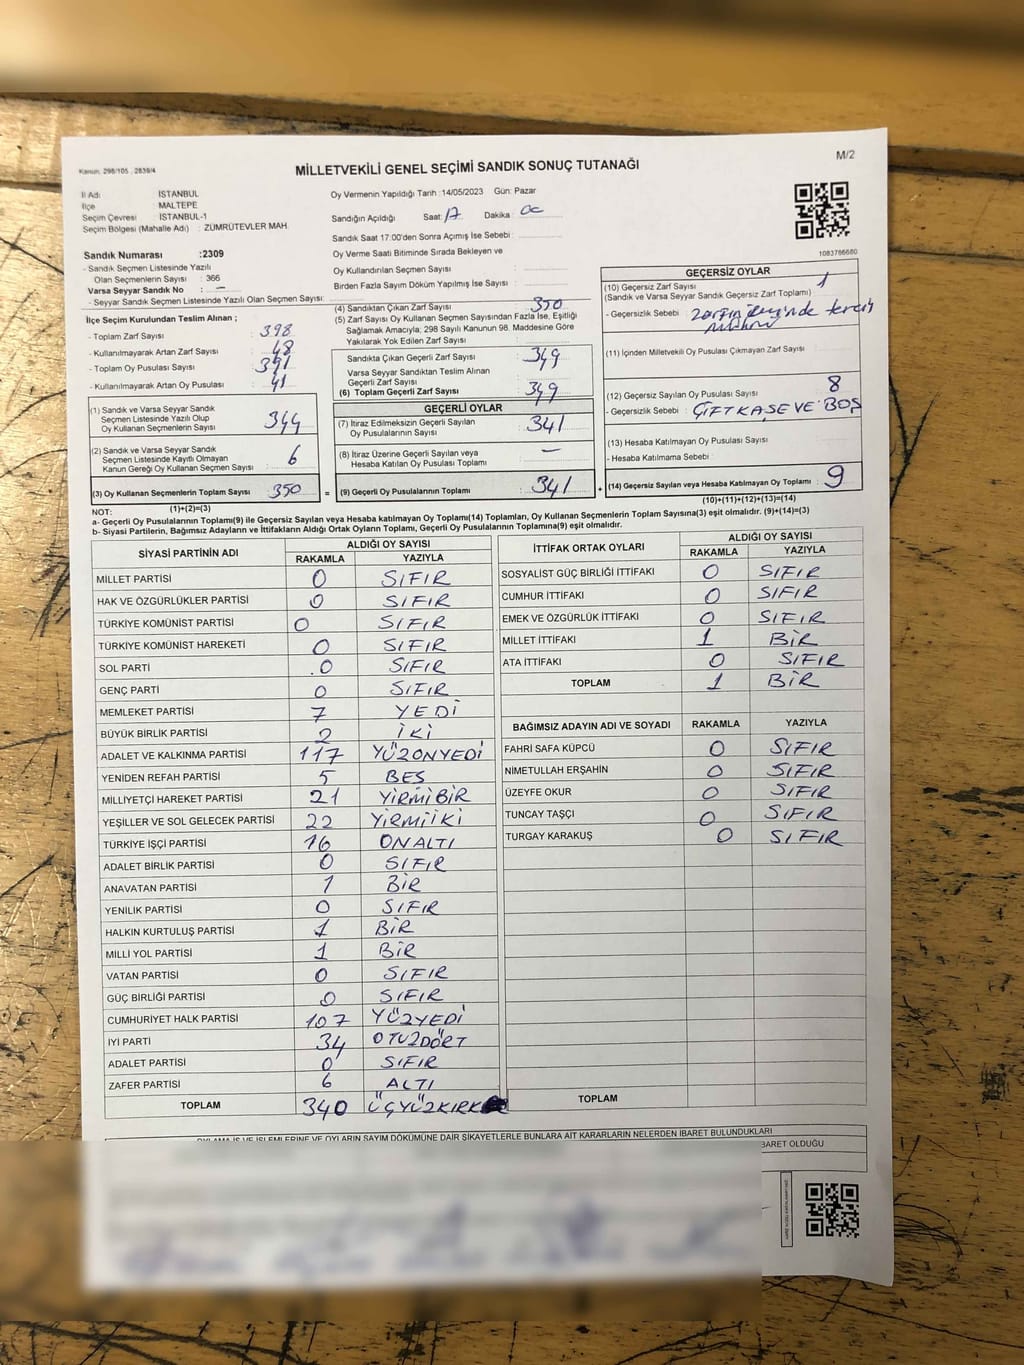 Kanun; 298/105 , 2839/4
MİLLETVEKİLİ GENEL SEÇİMİ SANDIK SONUÇ TUTANAĞI
M/2
İl Adı : İSTANBUL
İlçe : MALTEPE
Seçim Çevresi : İSTANBUL-1
Seçim Bölgesi (Mahalle Adı) : ZÜMRÜTEVLER MAH.
Oy Vermenin Yapıldığı Tarih :14/05/2023 Gün: Pazar
Sandığın Açıldığı Saat: 17 Dakika :
Sandık Saat 17:00'den Sonra Açımış İse Sebebi :
Sandık Numarası :2309
- Sandık Seçmen Listesinde Yazılı
Olan Seçmenlerin Sayısı : 366
Varsa Seyyar Sandık No : —
- Seyyar Sandık Seçmen Listesinde Yazılı Olan Seçmen Sayısı:
Oy Verme Saati Bitiminde Sırada Bekleyen ve
Oy Kullandırılan Seçmen Sayısı :
Birden Fazla Sayım Döküm Yapılmış İse Sayısı :
1083766660
İlçe Seçim Kurulundan Teslim Alınan ;
- Toplam Zarf Sayısı : 398
- Kullanılmayarak Artan Zarf Sayısı : 48
- Toplam Oy Pusulası Sayısı : 391
- Kullanılmayarak Artan Oy Pusulası : 41
(1) Sandık ve Varsa Seyyar Sandık
Seçmen Listesinde Yazılı Olup
Oy Kullanan Seçmenlerin Sayısı : 344
(2) Sandık ve Varsa Seyyar Sandık
Seçmen Listesinde Kayıtlı Olmayan
Kanun Gereği Oy Kullanan Seçmen Sayısı : 6
(3) Oy Kullanan Seçmenlerin Toplam Sayısı : 350
(4) Sandıktan Çıkan Zarf Sayısı : 350
(5) Zarf Sayısı Oy Kullanan Seçmen Sayısından Fazla İse, Eşitliği
Sağlamak Amacıyla; 298 Sayılı Kanunun 98. Maddesine Göre
Yakılarak Yok Edilen Zarf Sayısı :
Sandıkta Çıkan Geçerli Zarf Sayısı : 349
Varsa Seyyar Sandıktan Teslim Alınan
Geçerli Zarf Sayısı :
(6) Toplam Geçerli Zarf Sayısı : 349
GEÇERLİ OYLAR
(7) İtiraz Edilmeksizin Geçerli Sayılan
Oy Pusulalarının Sayısı : 341
(8) İtiraz Üzerine Geçerli Sayılan veya
Hesaba Katılan Oy Pusulası Toplamı : —
= (9) Geçerli Oy Pusulalarının Toplamı : 341 +
GEÇERSİZ OYLAR
(10) Geçersiz Zarf Sayısı : 1
(Sandık ve Varsa Seyyar Sandık Geçersiz Zarf Toplamı)
- Geçersizlik Sebebi : Zarfın
(11) İçinden Milletvekili Oy Pusulası Çıkmayan Zarf Sayısı :
(12) Geçersiz Sayılan Oy Pusulası Sayısı : 8
- Geçersizlik Sebebi : ÇİFT KAŞE VE BOŞ
(13) Hesaba Katılmayan Oy Pusulası Sayısı :
- Hesaba Katılmama Sebebi :
(14) Geçersiz Sayılan veya Hesaba Katılmayan Oy Toplamı : 9
NOT: (1)+(2)=(3)
(10)+(11)+(12)+(13)=(14)
a- Geçerli Oy Pusulalarının Toplamı(9) ile Geçersiz Sayılan veya Hesaba katılmayan Oy Toplamı(14) Toplamları, Oy Kullanan Seçmenlerin Toplam Sayısına(3) eşit olmalıdır. (9)+(14)=(3)
b- Siyasi Partilerin, Bağımsız Adayların ve İttifakların Aldığı Ortak Oyların Toplamı, Geçerli Oy Pusulalarının Toplamına(9) eşit olmalıdır.
SİYASİ PARTİNİN ADI ALDIĞI OY SAYISI
RAKAMLA YAZIYLA
MİLLET PARTİSİ 0 SIFIR
HAK VE ÖZGÜRLÜKLER PARTİSİ 0 SIFIR
TÜRKİYE KOMÜNİST PARTİSİ 0 SIFIR
TÜRKİYE KOMÜNİST HAREKETİ 0 SIFIR
SOL PARTİ 0 SIFIR
GENÇ PARTİ 0 SIFIR
MEMLEKET PARTİSİ 7 YEDİ
BÜYÜK BİRLİK PARTİSİ 2 İKİ
ADALET VE KALKINMA PARTİSİ 117 YÜZONYEDİ
YENİDEN REFAH PARTİSİ 5 BEŞ
MİLLİYETÇİ HAREKET PARTİSİ 21 YİRMİBİR
YEŞİLLER VE SOL GELECEK PARTİSİ 22 YİRMİİKİ
TÜRKİYE İŞÇİ PARTİSİ 16 ONALTI
ADALET BİRLİK PARTİSİ 0 SIFIR
ANAVATAN PARTİSİ 1 BİR
YENİLİK PARTİSİ 0 SIFIR
HALKIN KURTULUŞ PARTİSİ 1 BİR
MİLLİ YOL PARTİSİ 1 BİR
VATAN PARTİSİ 0 SIFIR
GÜÇ BİRLİĞİ PARTİSİ 0 SIFIR
CUMHURİYET HALK PARTİSİ 107 YÜZYEDİ
İYİ PARTİ 34 OTUZDÖRT
ADALET PARTİSİ 0 SIFIR
ZAFER PARTİSİ 6 ALTI
TOPLAM 340 ÜÇYÜZKIRK
İTTİFAK ORTAK OYLARI ALDIĞI OY SAYISI
RAKAMLA YAZIYLA
SOSYALİST GÜÇ BİRLİĞİ İTTİFAKI 0 SIFIR
CUMHUR İTTİFAKI 0 SIFIR
EMEK VE ÖZGÜRLÜK İTTİFAKI 0 SIFIR
MİLLET İTTİFAKI 1 BİR
ATA İTTİFAKI 0 SIFIR
TOPLAM 1 BİR
BAĞIMSIZ ADAYIN ADI VE SOYADI RAKAMLA YAZIYLA
FAHRİ SAFA KÜPCÜ 0 SIFIR
NİMETULLAH ERŞAHİN 0 SIFIR
ÜZEYFE OKUR 0 SIFIR
TUNCAY TAŞÇI 0 SIFIR
TURGAY KARAKUŞ 0 SIFIR
TOPLAM
OYLAMA İŞ VE İŞLEMLERİNE VE OYLARIN SAYIM DÖKÜMÜNE DAİR ŞİKAYETLERLE BUNLARA AİT KARARLARIN NELERDEN İBARET BULUNDUKLARI
İBARET OLDUĞU